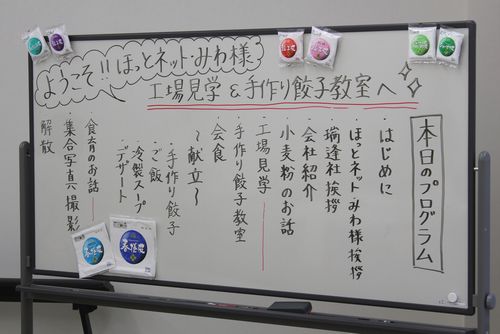 ようこそ!! ほっとネット・みわ様
工場見学&手作り餃子教室へ
本日のプログラム
・はじめに
・ほっとネットみわ様挨拶
・瑞逢社挨拶
・会社紹介
・小麦粉のお話
・工場見学
・手作り餃子教室
・会食
〜献立〜
・手作り餃子
・ご飯
・冷製スープ
・デザート
・食育のお話
・集合写真撮影
・解散
春捲皮